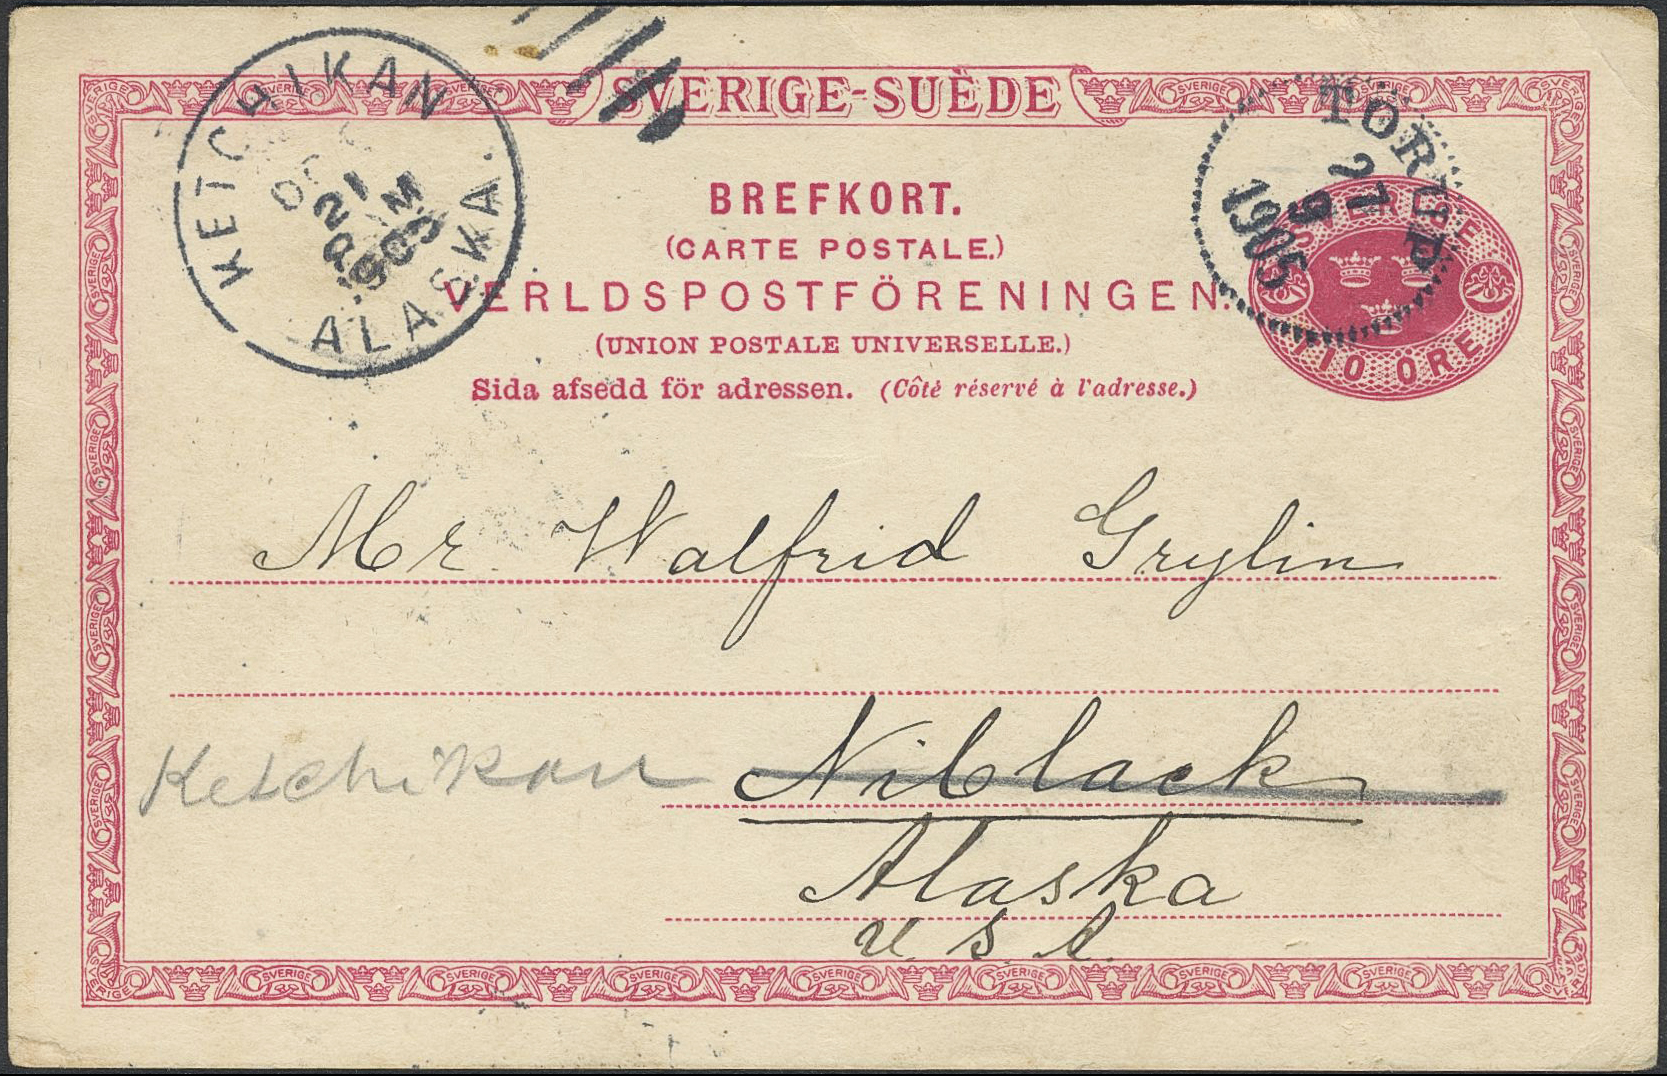 SVERIGE-SUÈDE
KETCHIKAN
21
M
ALASKA.
TOREA
21
9
1905
BREFKORT.
(CARTE POSTALE.)
VERLDSPOSTFÖRENINGEN.
(UNION POSTALE UNIVERSELLE.)
Sida afsedd för adressen. (Côté réservé à l'adresse.)
SVERIGE
10 ÖRE
Mr Walfrid Grylin
Ketchikan Niblack
Alaska
U.S.A.